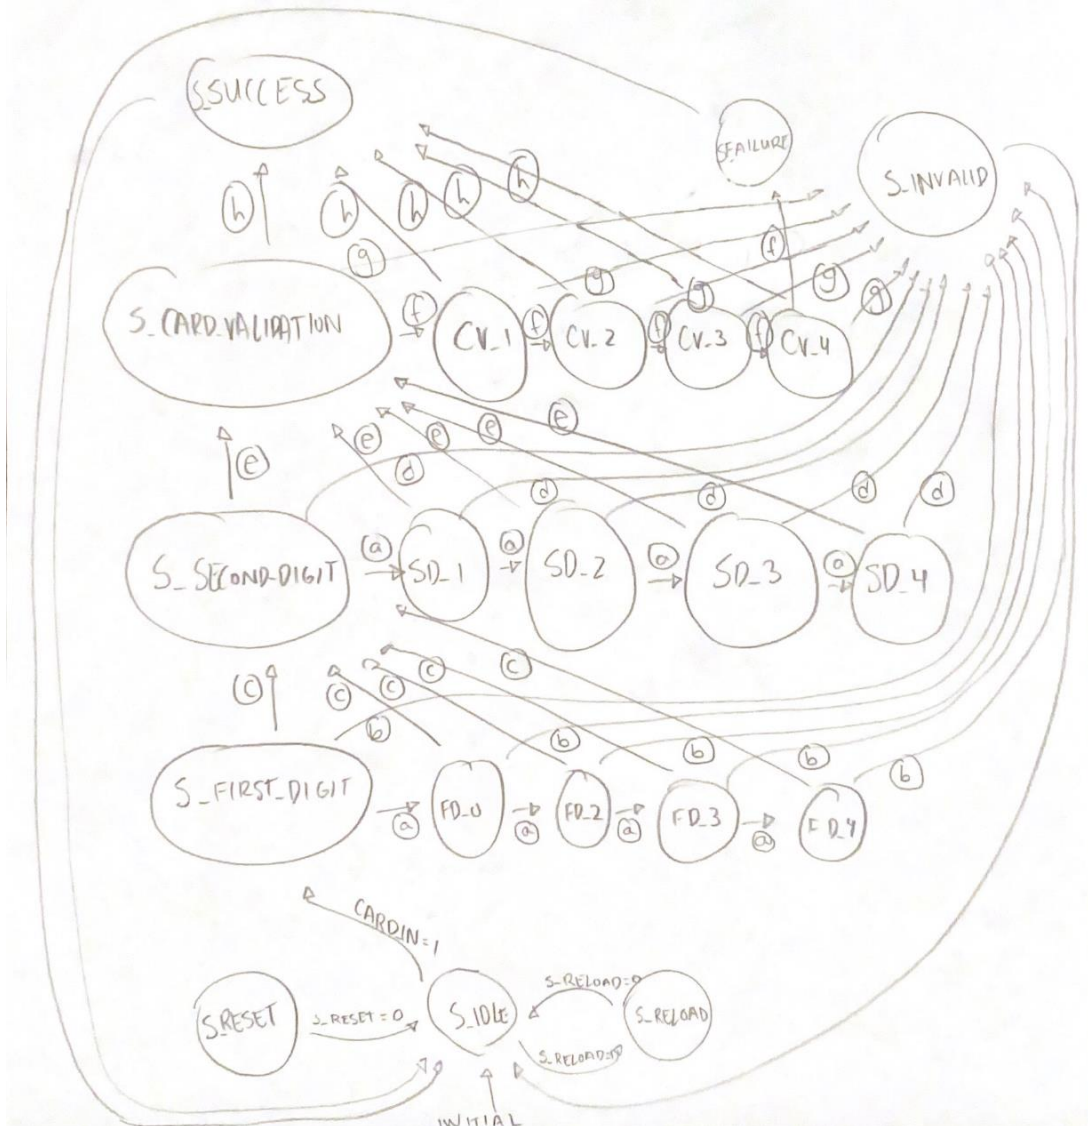 S_SUCCESS
S_FAILURE
S_INVALID
h
h
h
h
h
f
g
g
g
g
g
S_CARD_VALIDATION
f
CV_1
f
CV_2
f
CV_3
f
CV_4
e
e
e
e
e
d
d
d
d
d
S_SECOND_DIGIT
a
SD_1
a
SD_2
a
SD_3
a
SD_4
c
c
c
c
c
b
b
b
b
b
S_FIRST_DIGIT
a
FD_0
a
FD_2
a
FD_3
a
FD_4
CARDIN=1
S_RESET
S_RESET=0
S_IDLE
S_RELOAD=0
S_RELOAD
INITIAL